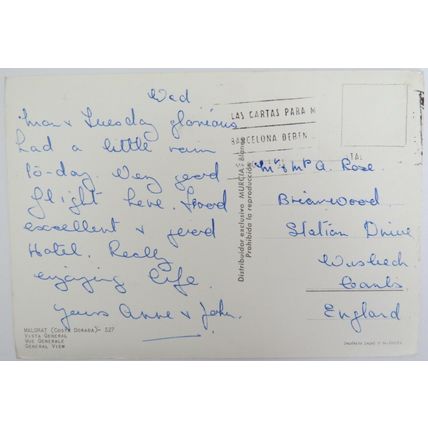 Wed
Mon & Tuesday glorious
had a little rain
to-day. Very good
flight here. Food
excellent & good
Hotel. Really
enjoying life.
Yours Anne & John.
MALGRAT (COSTA DORADA)- 527
VISTA GENERAL
VUE GENERALE
GENERAL VIEW
Distribuidor exclusivo MURCIA: Blanco
Prohibida la reproducción
LAS CARTAS PARA M
BARCELONA DEBEN
TA:
Mr & Mrs A. Rose.
Briarwood
Station Drive
Wisbech
Cambs
England